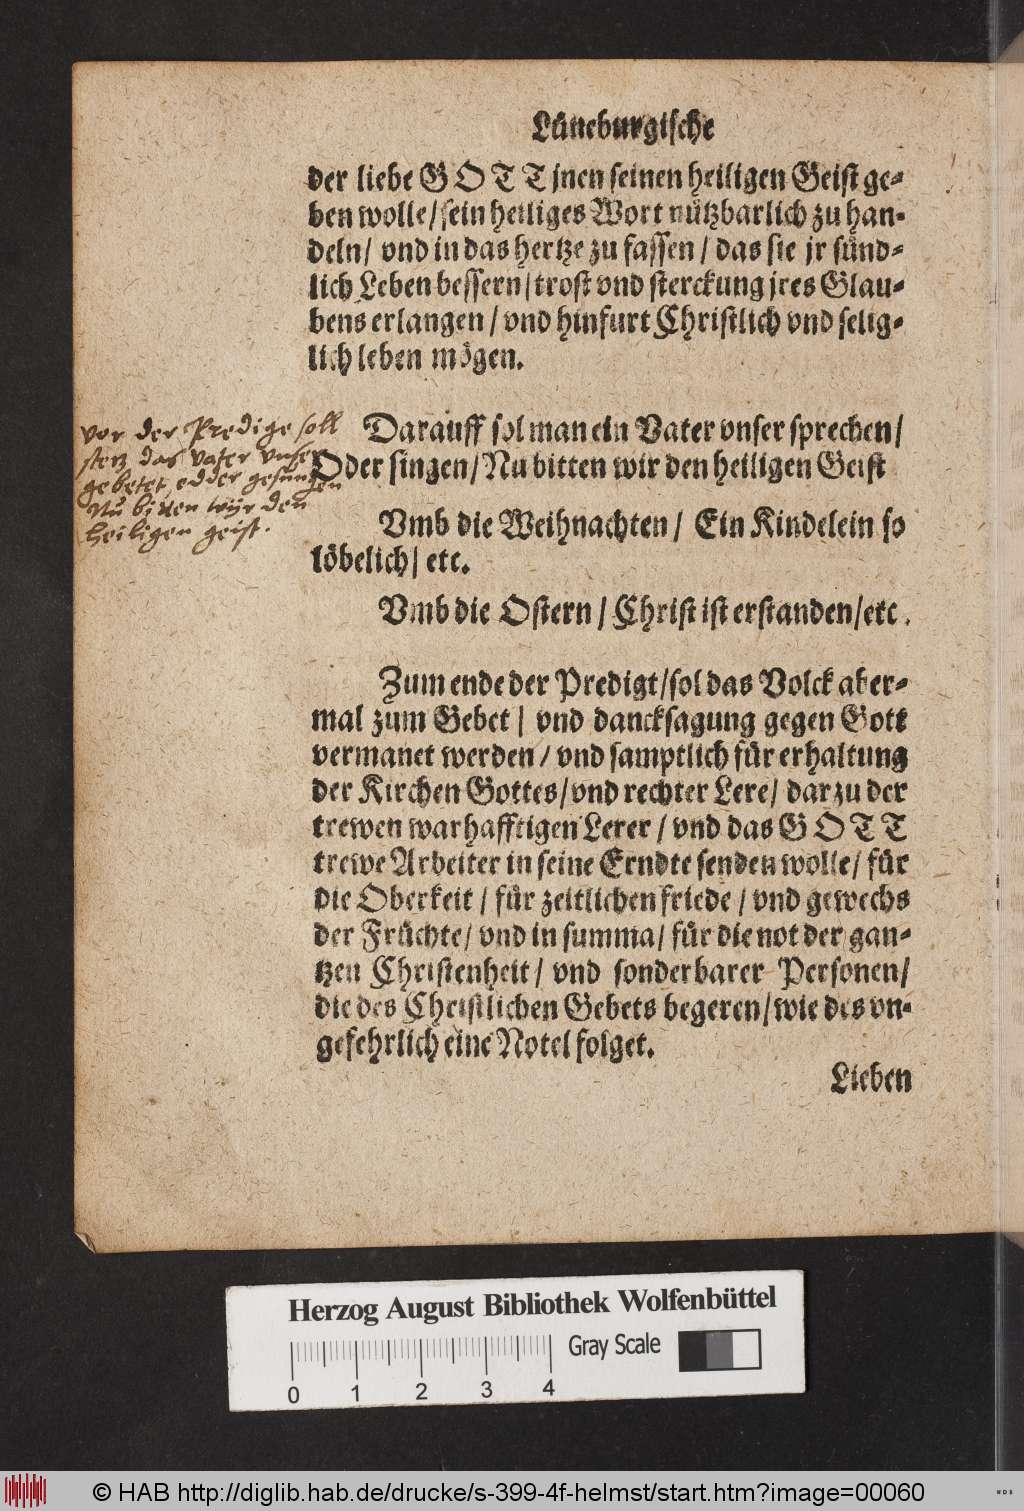 Lüneburgische
der liebe GOTT jnen seinen heiligen Geist ge-
ben wolle/ sein heiliges Wort nützbarlich zu han-
deln/ vnd in das hertze zu fassen/ das sie jr sünd-
lich Leben bessern/ trost vnd sterckung jres Glau-
bens erlangen/ vnd hinfurt Christlich vnd selig-
lich leben mögen.
vor der Predige soll
stetz das vater vnser
gebetet, edder gesungen
Nu bitten wyr den
heiligen geist.
Darauff sol man ein Vater vnser sprechen/
Oder singen/ Nu bitten wir den heiligen Geist
Vmb die Weihnachten/ Ein Kindelein so
löbelich/ etc.
Vmb die Ostern/ Christ ist erstanden/ etc.
Zum ende der Predigt/ sol das Volck aber-
mal zum Gebet/ vnd dancksagung gegen Gott
vermanet werden/ vnd samptlich für erhaltung
der Kirchen Gottes/ vnd rechter Lere/ darzu der
trewen warhafftigen Lerer/ vnd das GOTT
trewe Arbeiter in seine Erndte senden wolle/ für
die Oberkeit/ für zeitlichen friede/ vnd gewechs
der Früchte/ vnd in summa/ für die not der gan-
tzen Christenheit/ vnd sonderbarer Personen/
die des Christlichen Gebets begeren/ wie des vn-
gefehrlich eine Notel folget.
Lieben
Herzog August Bibliothek Wolfenbüttel
Gray Scale
0 1 2 3 4
© HAB http://diglib.hab.de/drucke/s-399-4f-helmst/start.htm?image=00060